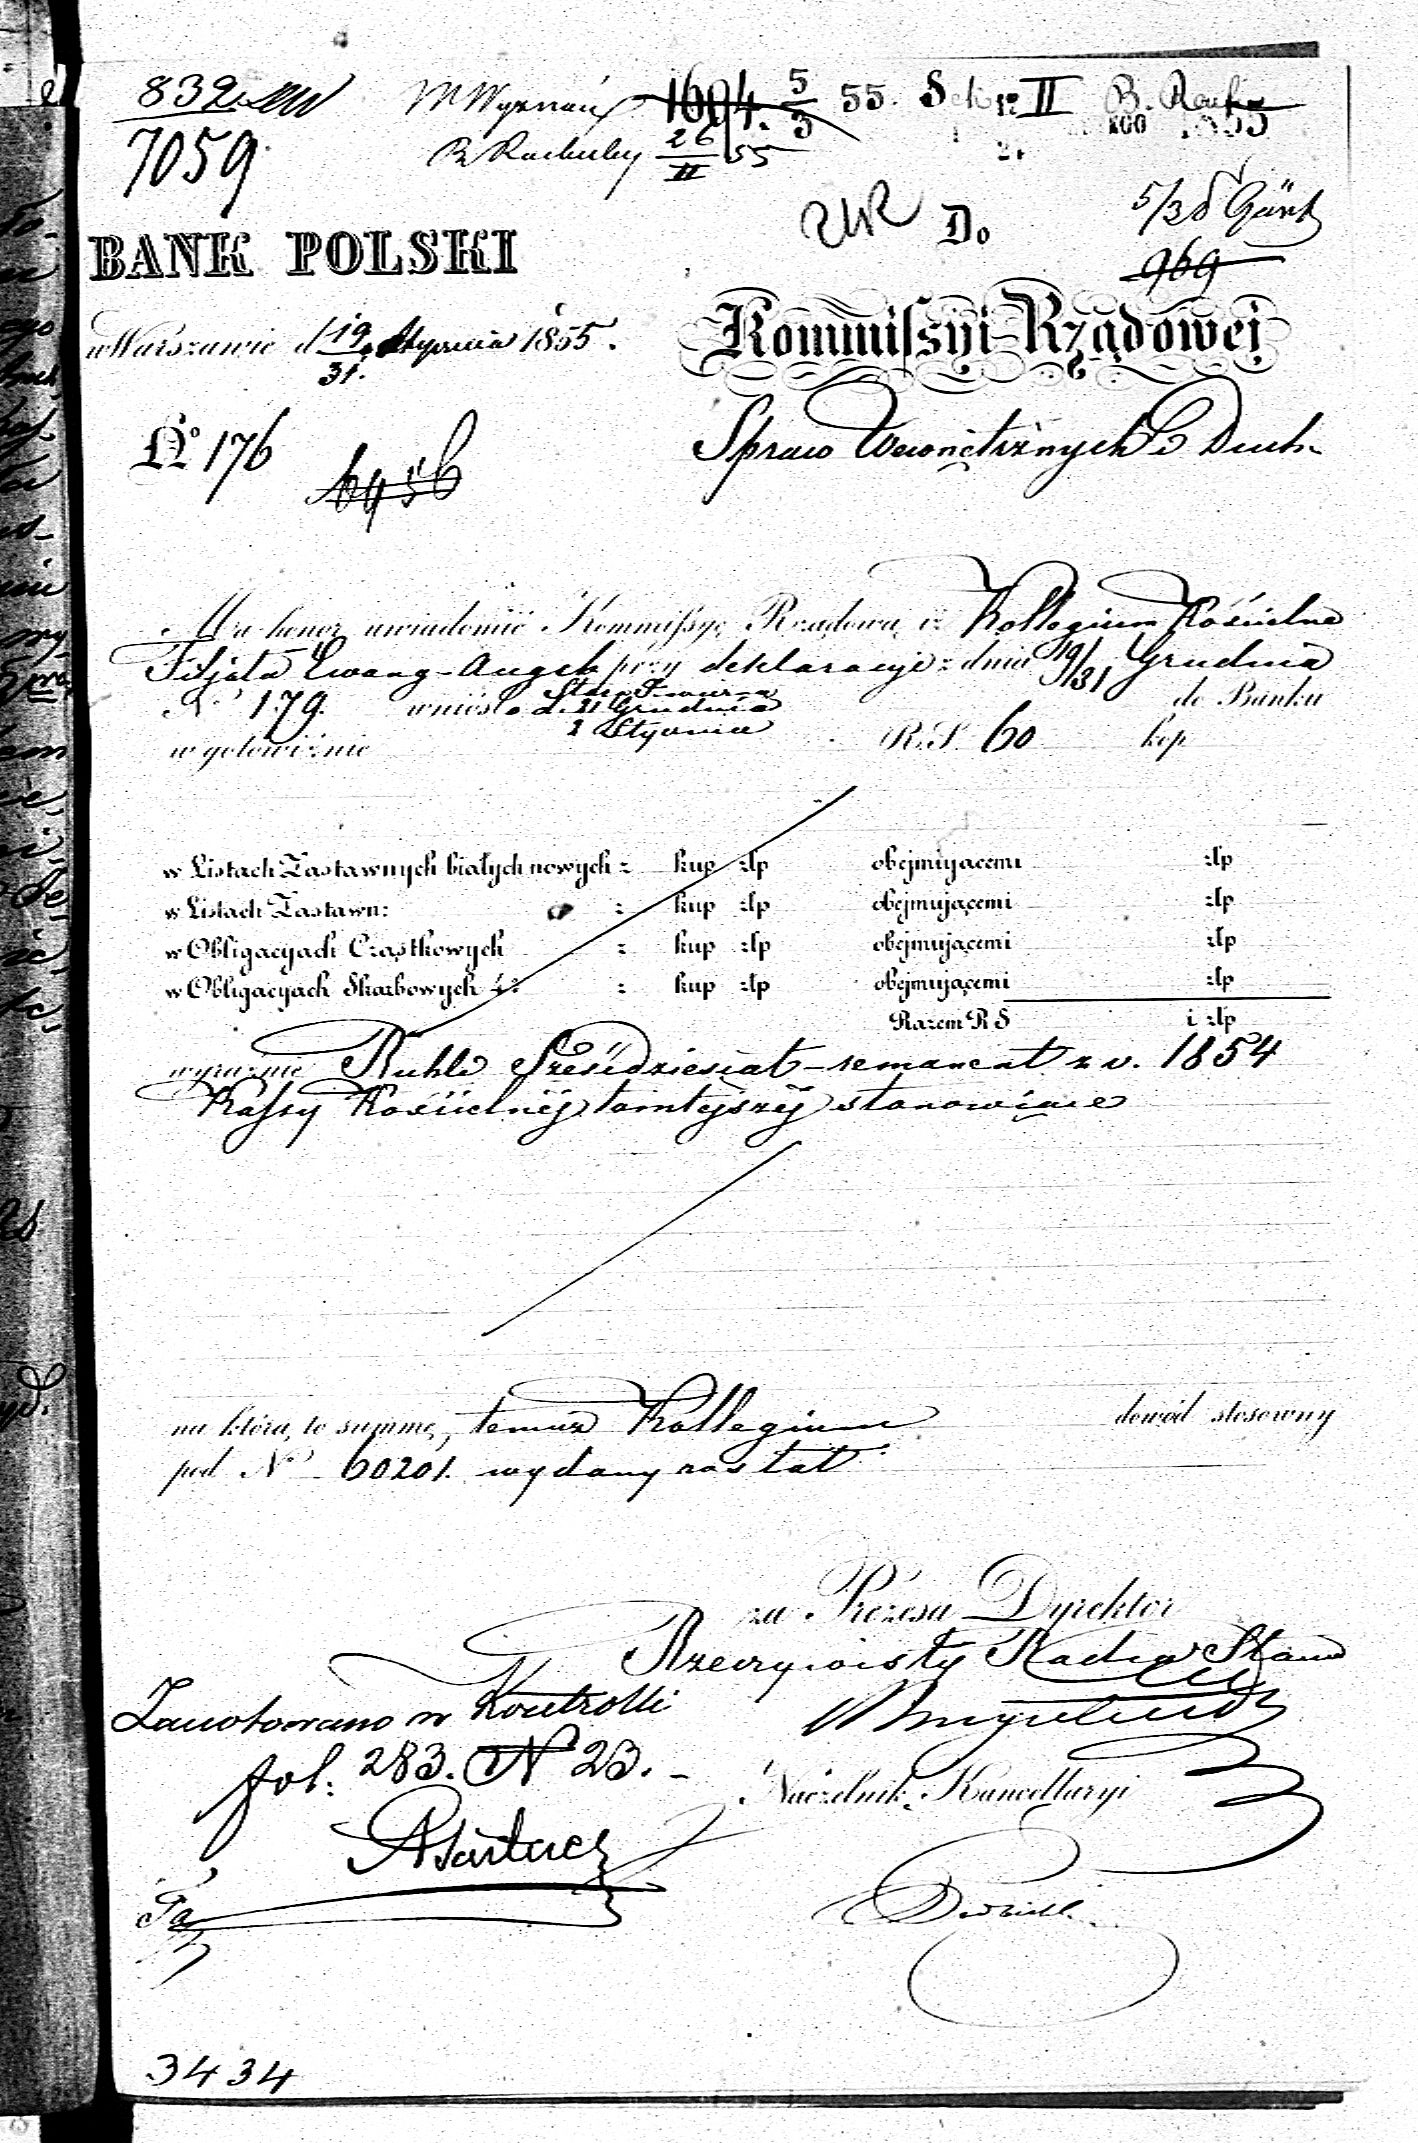 832
1694. 5/3 55. Sek II
7059
26/II 55
BANK POLSKI
Do
969
w Warszawie d 19/31. Stycznia 1855.
Kommissyi Rządowej
No 176
6456
Spraw Wewnętrznych i Duch.
Ma honor uwiadomić Kommissyę Rządową iż Kollegium Kościelne
Filjału Ewang-Augsb przy deklaracyi z dnia 19/31 Grudnia
No 179. wniosło d. 21 Grudnia do Banku
2 Stycznia
w gotowiźnie R.S. 60 kop
w Listach Zastawnych białych nowych z kup złp obejmującemi złp
w Listach Zastawn: z kup złp obejmującemi złp
w Obligacyach Cząstkowych z kup złp obejmującemi złp
w Obligacyach Skarbowych z kup złp obejmującemi złp
Razem R S i złp
wyraźnie Rubli Sześćdziesiąt - remanent z r. 1854
Kassy Kościelnéj tamtejszéj stanowiące
na którą to summę, temuż Kollegium dowód stosowny
pod No 60201. wydany został
za Prezesa Dyrektor
Rzeczywisty Radca Stanu
Zanotowano w Kontrolli
fol. 283. N 23.-
Naczelnik Kancellaryi
3434